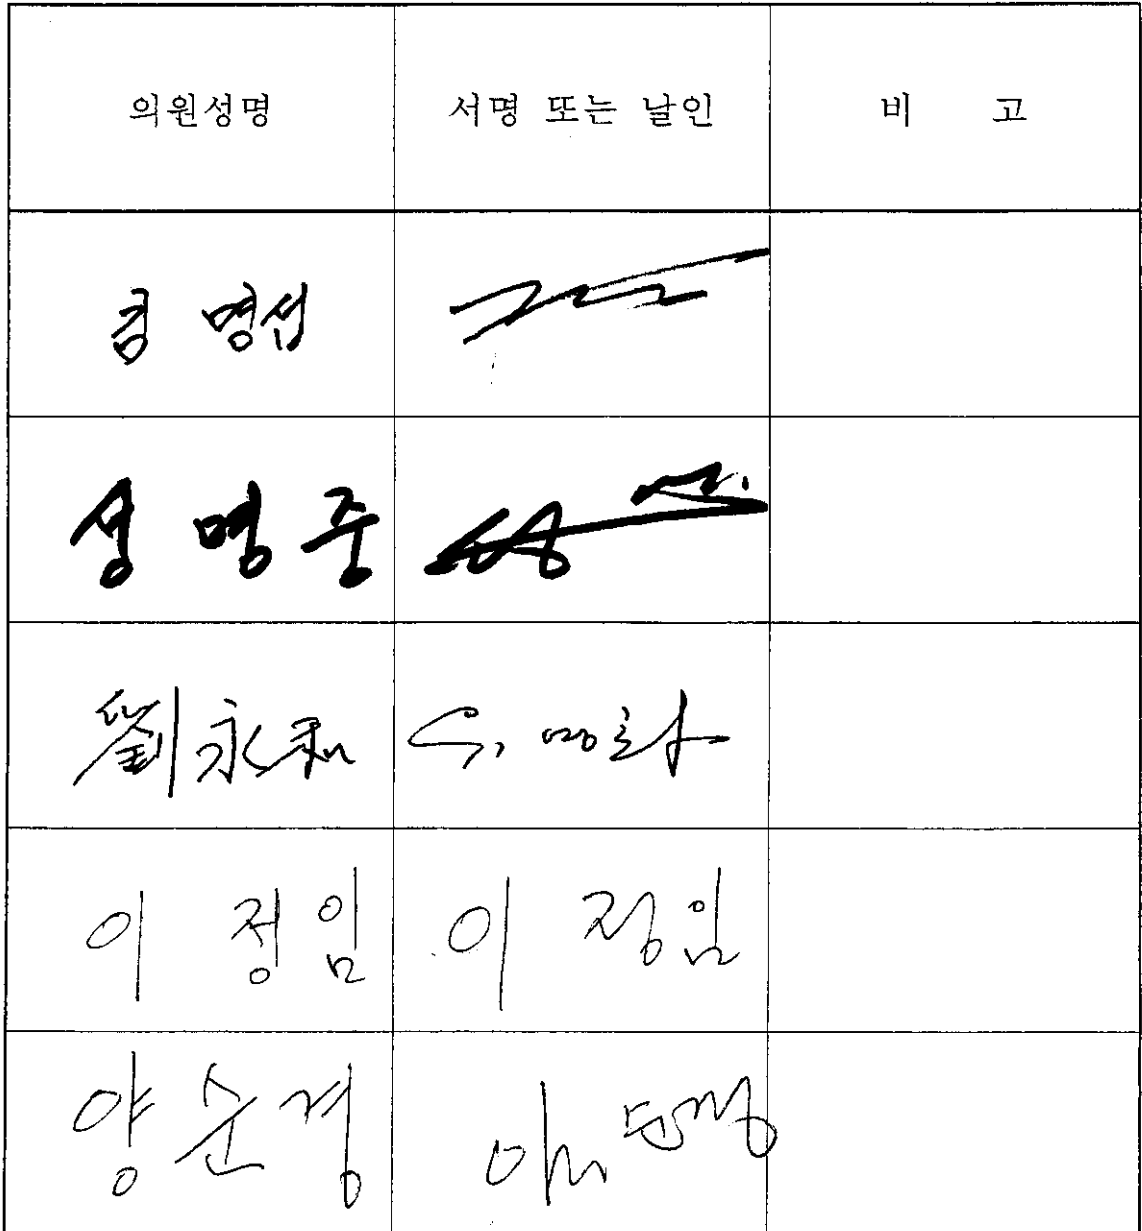 의원성명 서명 또는 날인 비 고
김명섭
성명중
劉永和 유영화
이 정임 이 정임
양순경 양순경